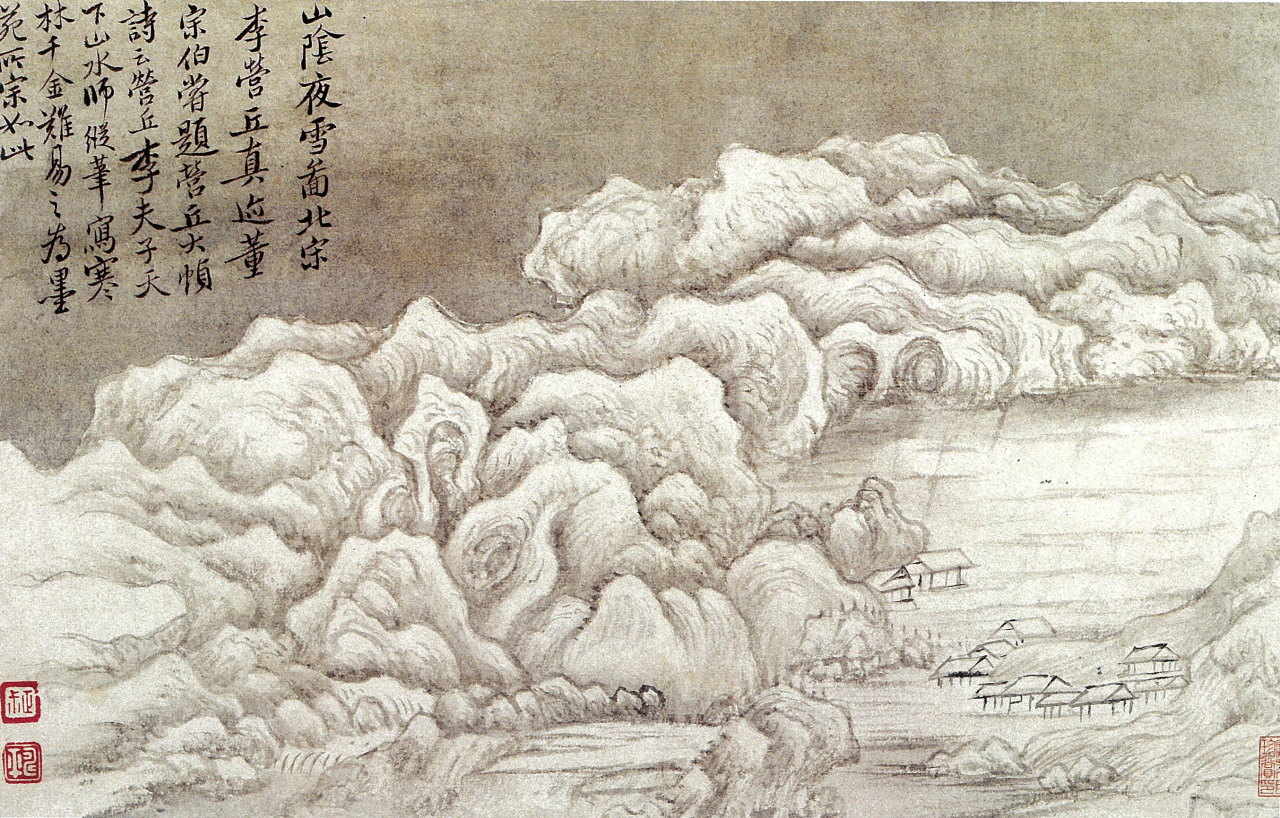 山陰夜雪啚北宋
李營丘真迹董
宗伯嘗題營丘大幀
詩云營丘李夫子天
下山水師縱筆寫寒
林千金難易之為墨
苑所宗如此